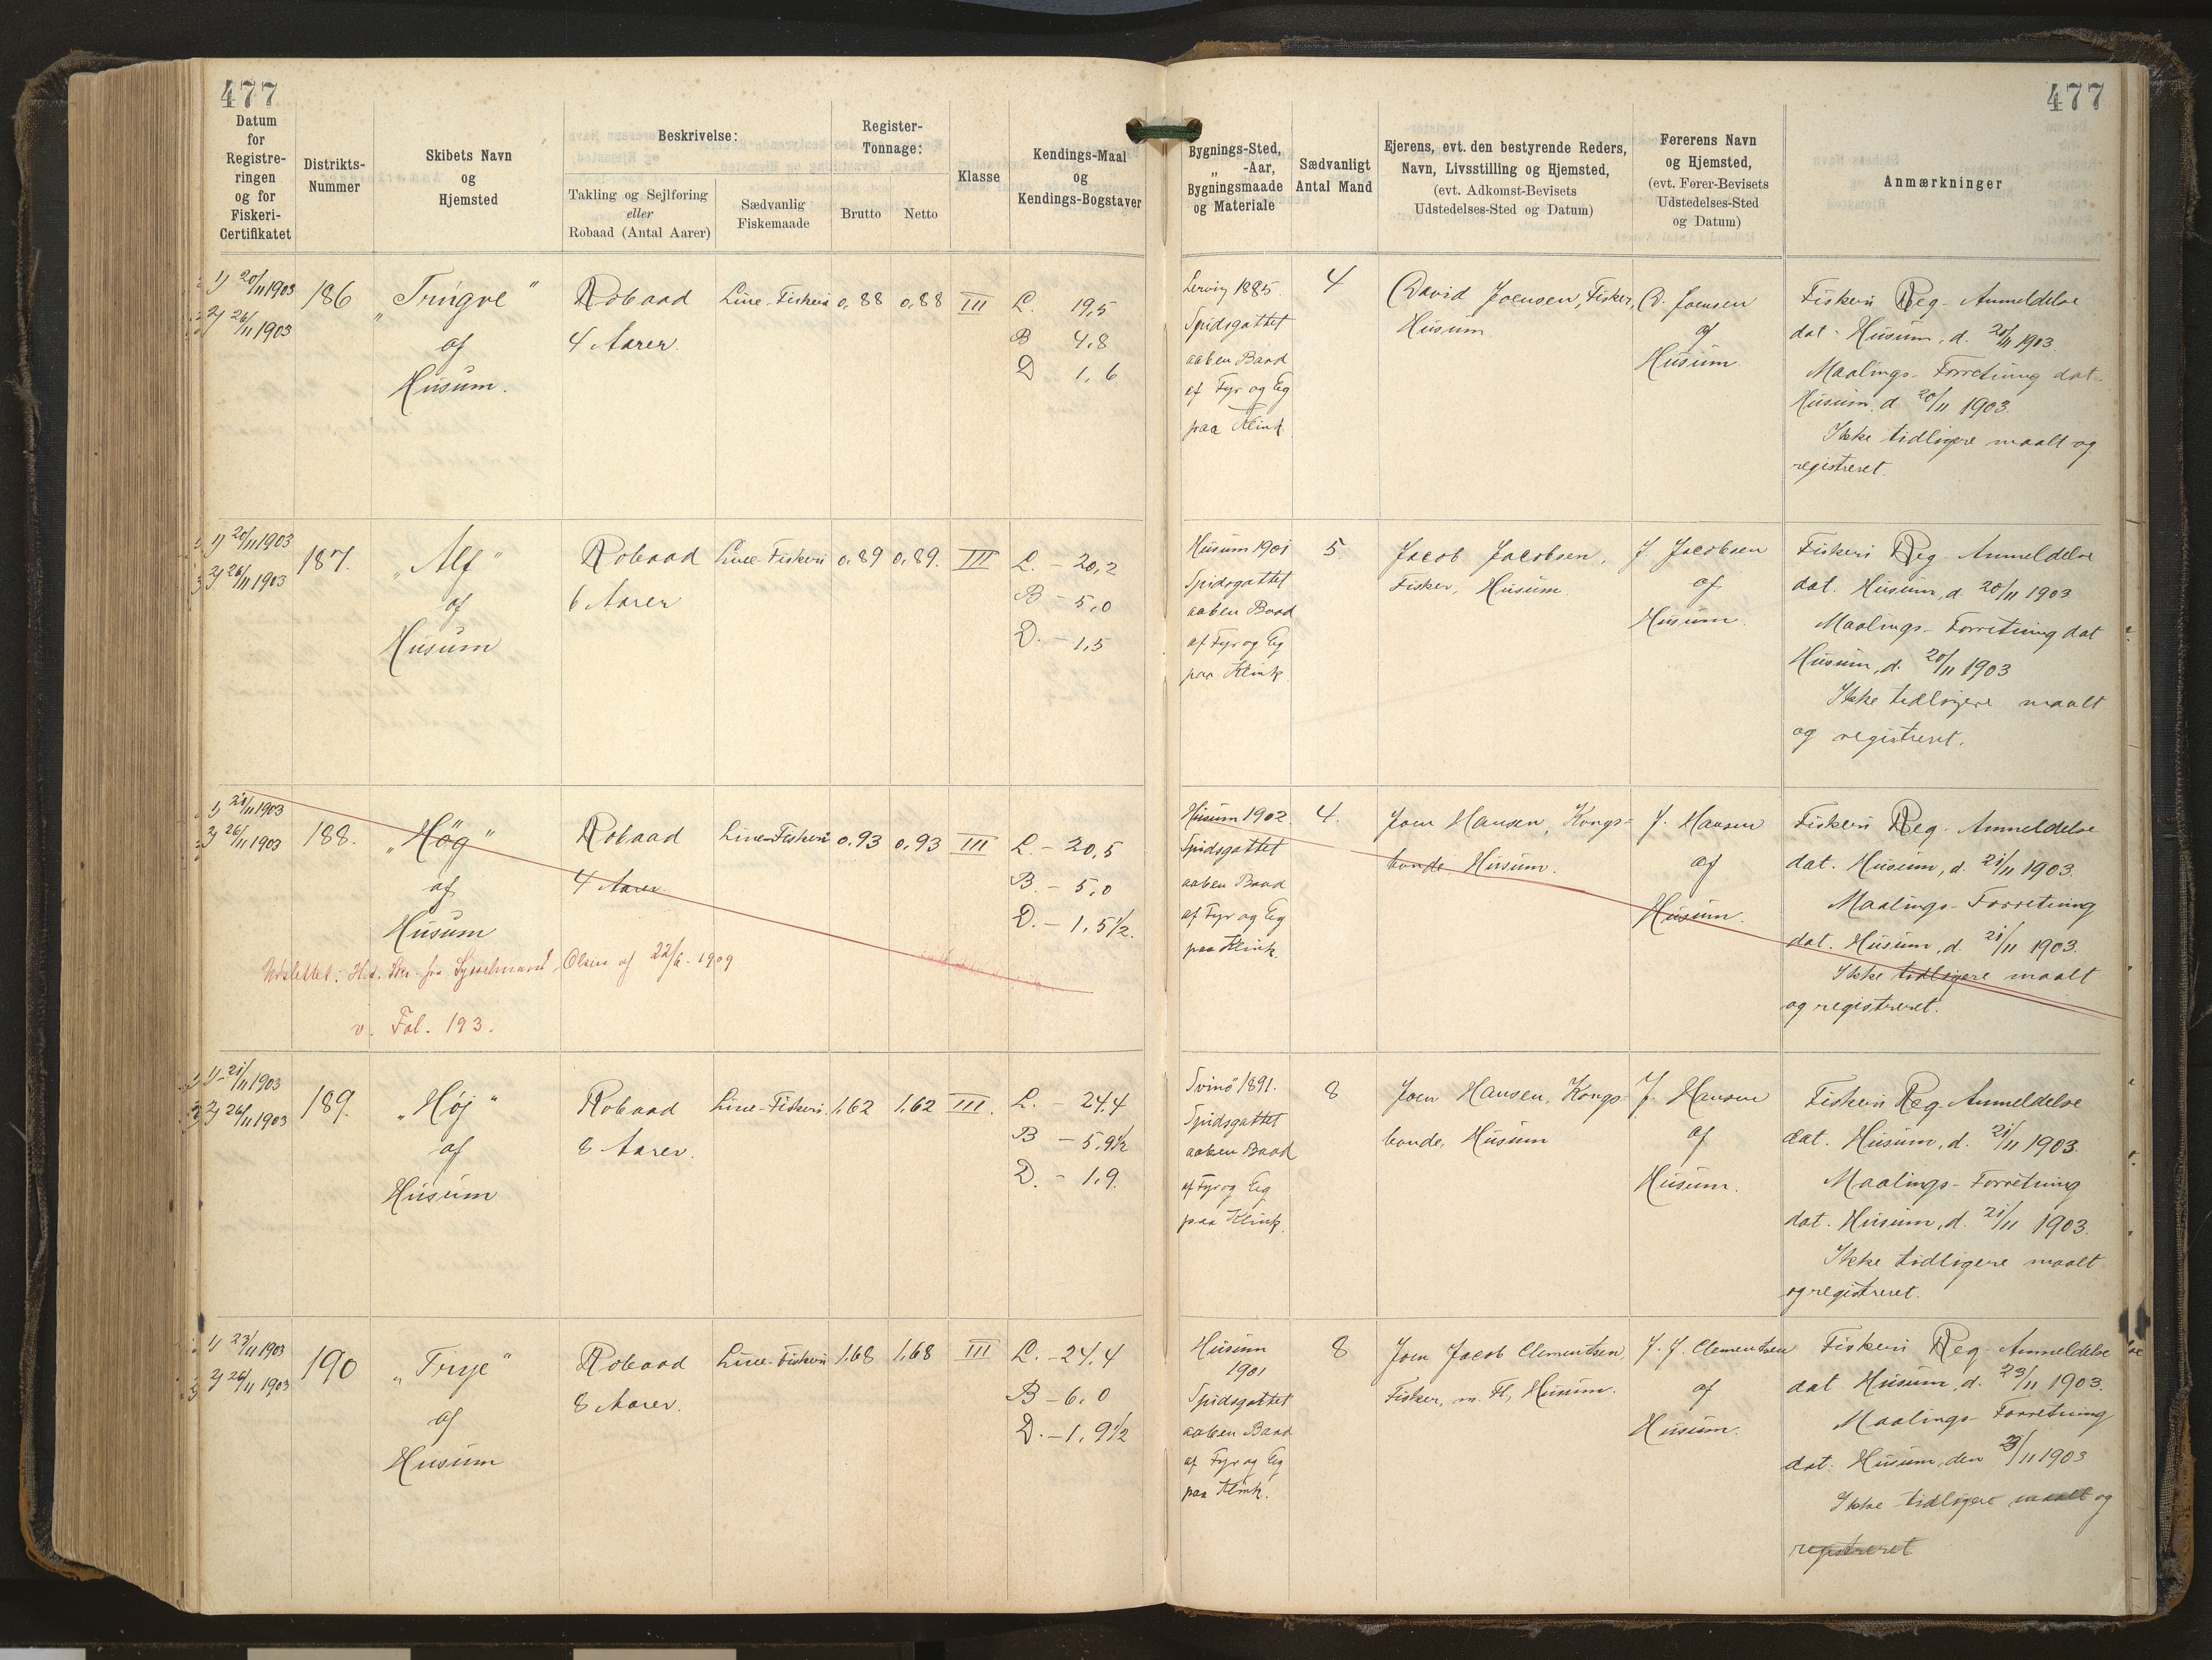 477
477
Datum
for
Registre-
ringen
og for
Fiskeri-
Certifikatet
Distrikts-
Nummer
Skibets Navn
og
Hjemsted
Beskrivelse:
Takling og Sejlføring
eller
Robaad (Antal Aarer)
Sædvanlig
Fiskemaade
Register-
Tonnage:
Brutto
Netto
Klasse
Kendings-Maal
og
Kendings-Bogstaver
Bygnings-Sted,
„ -Aar,
Bygningsmaade
og Materiale
Sædvanligt
Antal Mand
Ejerens, evt. den bestyrende Reders,
Navn, Livsstilling og Hjemsted,
(evt. Adkomst-Bevisets
Udstedelses-Sted og Datum)
Førerens Navn
og Hjemsted,
(evt. Fører-Bevisets
Udstedelses-Sted
og Datum)
Anmærkninger
1) 20/11 1903
2) 26/11 1903
186
„Trygve"
af
Husum.
Robaad
4 Aarer.
Line-Fiskeri
0,88
0,88
III
L. 19,5
B 4,8
D 1,6
Lervig 1885.
Spidsgattet
aaben Baad
af Fyr og Eg
paa Klink
4
David Joensen, Fisker,
Husum
D. Joensen
af
Husum.
Fiskeri Reg- Anmeldelse
dat. Husum, d. 20/11 1903.
Maalings- Forretning dat.
Husum, d. 20/11 1903.
Ikke tidligere maalt og
registreret.
1) 20/11 1903
2) 26/11 1903
187.
„Alf"
af
Husum
Robaad
6 Aarer
Line-Fiskeri
0,89
0,89.
III
L. - 20,2
B - 5,0
D. - 1,5
Husum 1901
Spidsgattet
aaben Baad
af Fyr og Eg
paa Klink
5.
Jacob Jacobsen,
Fisker, Husum.
J. Jacobsen
af
Husum.
Fiskeri Reg- Anmeldelse
dat. Husum, d. 20/11 1903
Maalings- Forretning dat
Husum, d. 20/11 1903
Ikke tidligere maalt
og registreret.
1) 21/11 1903
2) 26/11 1903
188.
„Høg"
af
Husum
Robaad
4 Aarer.
Line-Fiskeri
0.93
0,93
III
L. - 20,5
B. - 5,0
D. - 1,5 1/2.
Udslettet: H.t. Skr. fra Sysselmand Olsen af 22/6 - 1909
v. Fol. 193.
Husum 1902.
Spidsgattet
aaben Baad
af Fyr og Eg
paa Klink.
4.
Joen Hansen, Kongs-
bonde, Husum.
J. Hansen
af
Husum.
Fiskeri Reg- Anmeldelse
dat. Husum, d. 21/11 1903.
Maalings- Forretning
dat. Husum, d. 21/11 1903.
Ikke tidligere maalt
og registreret.
1) 21/11 1903
2) 26/11 1903
189.
„Høj"
af
Husum
Robaad
8 Aarer.
Line-Fiskeri.
1,62
1,62
III.
L. - 24,4
B - 5,9 1/2
D. - 1,9.
Svinø 1891.
Spidsgattet
aaben Baad
af Fyr og Eg
paa Klink.
8
Joen Hansen, Kongs-
bonde, Husum
J. Hansen
af
Husum.
Fiskeri Reg- Anmeldelse
dat. Husum, d. 21/11 1903.
Maalings- Forretning
dat. Husum, d. 21/11 1903.
Ikke tidligere maalt
og registreret.
1) 23/11 1903
2) 26/11 1903
190
af
Husum
Robaad
8 Aarer.
Line-Fiskeri
1,68
1,68
III
L. - 24,4
B - 6,0
D. - 1,9 1/2
Husum
1901
Spidsgattet
aaben Baad
af Fyr og Eg
paa Klink.
8
Joen Jacob Clementsen
Fisker, m. Fl, Husum.
J. J. Clementsen
af
Husum.
Fiskeri Reg- Anmeldelse
dat Husum, d. 23/11 1903.
Maalings- Forretning
dat. Husum, den 23/11 1903
Ikke tidligere maalt og
registreret